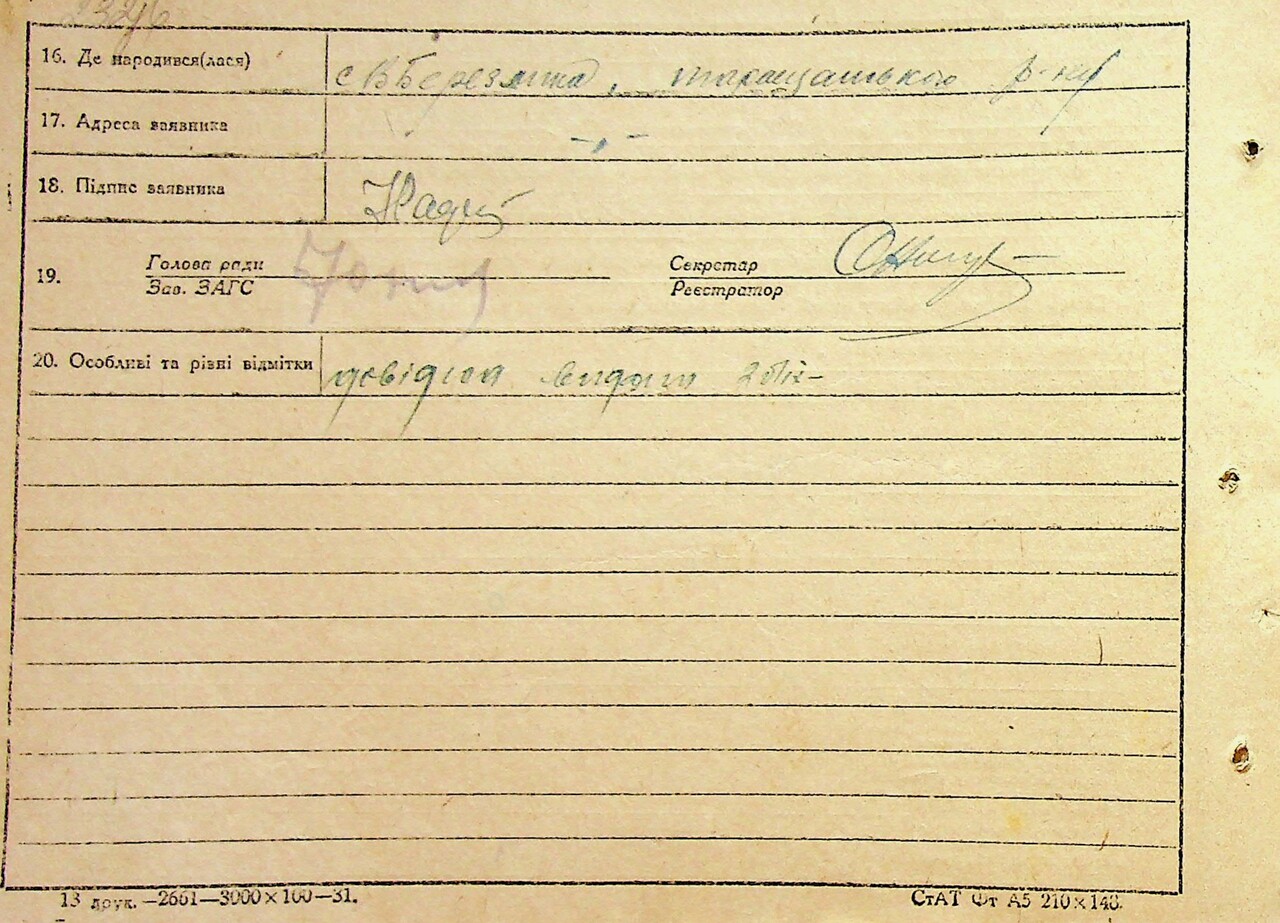 16. Де народився(лася) с В Березянка, таращанського р-ну
17. Адреса заявника -„-
18. Підпис заявника
19. Голова ради
Зав. ЗАГС
Секретар
Реєстратор
20. Особливі та різні відмітки довідка видата
13 друк. —2661—3000×100—31. СтАТ Фт А5 210×148.